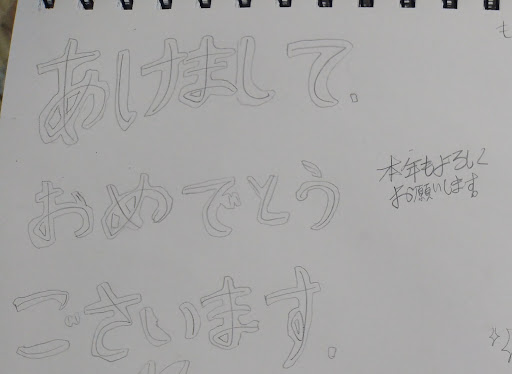 あけまして.
おめでとう
ございます.
本年もよろしく
お願いします